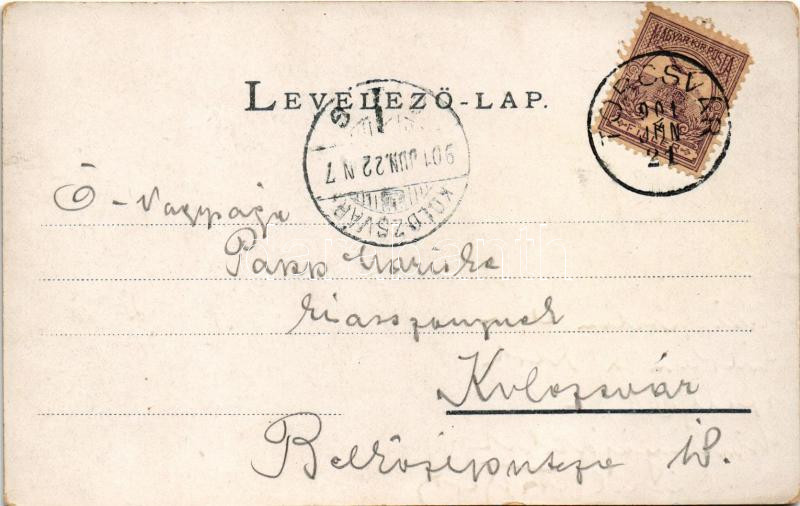 LEVELEZŐ-LAP.
MAGYAR KIR. POSTA
TÖRCSVÁR
901 JUN 21
KOLOZSVÁR
901 JUN. 22 N 7
Ő - Nagysága
Papp Mariska
kisasszonynak
Kolozsvár
Belközéputcza